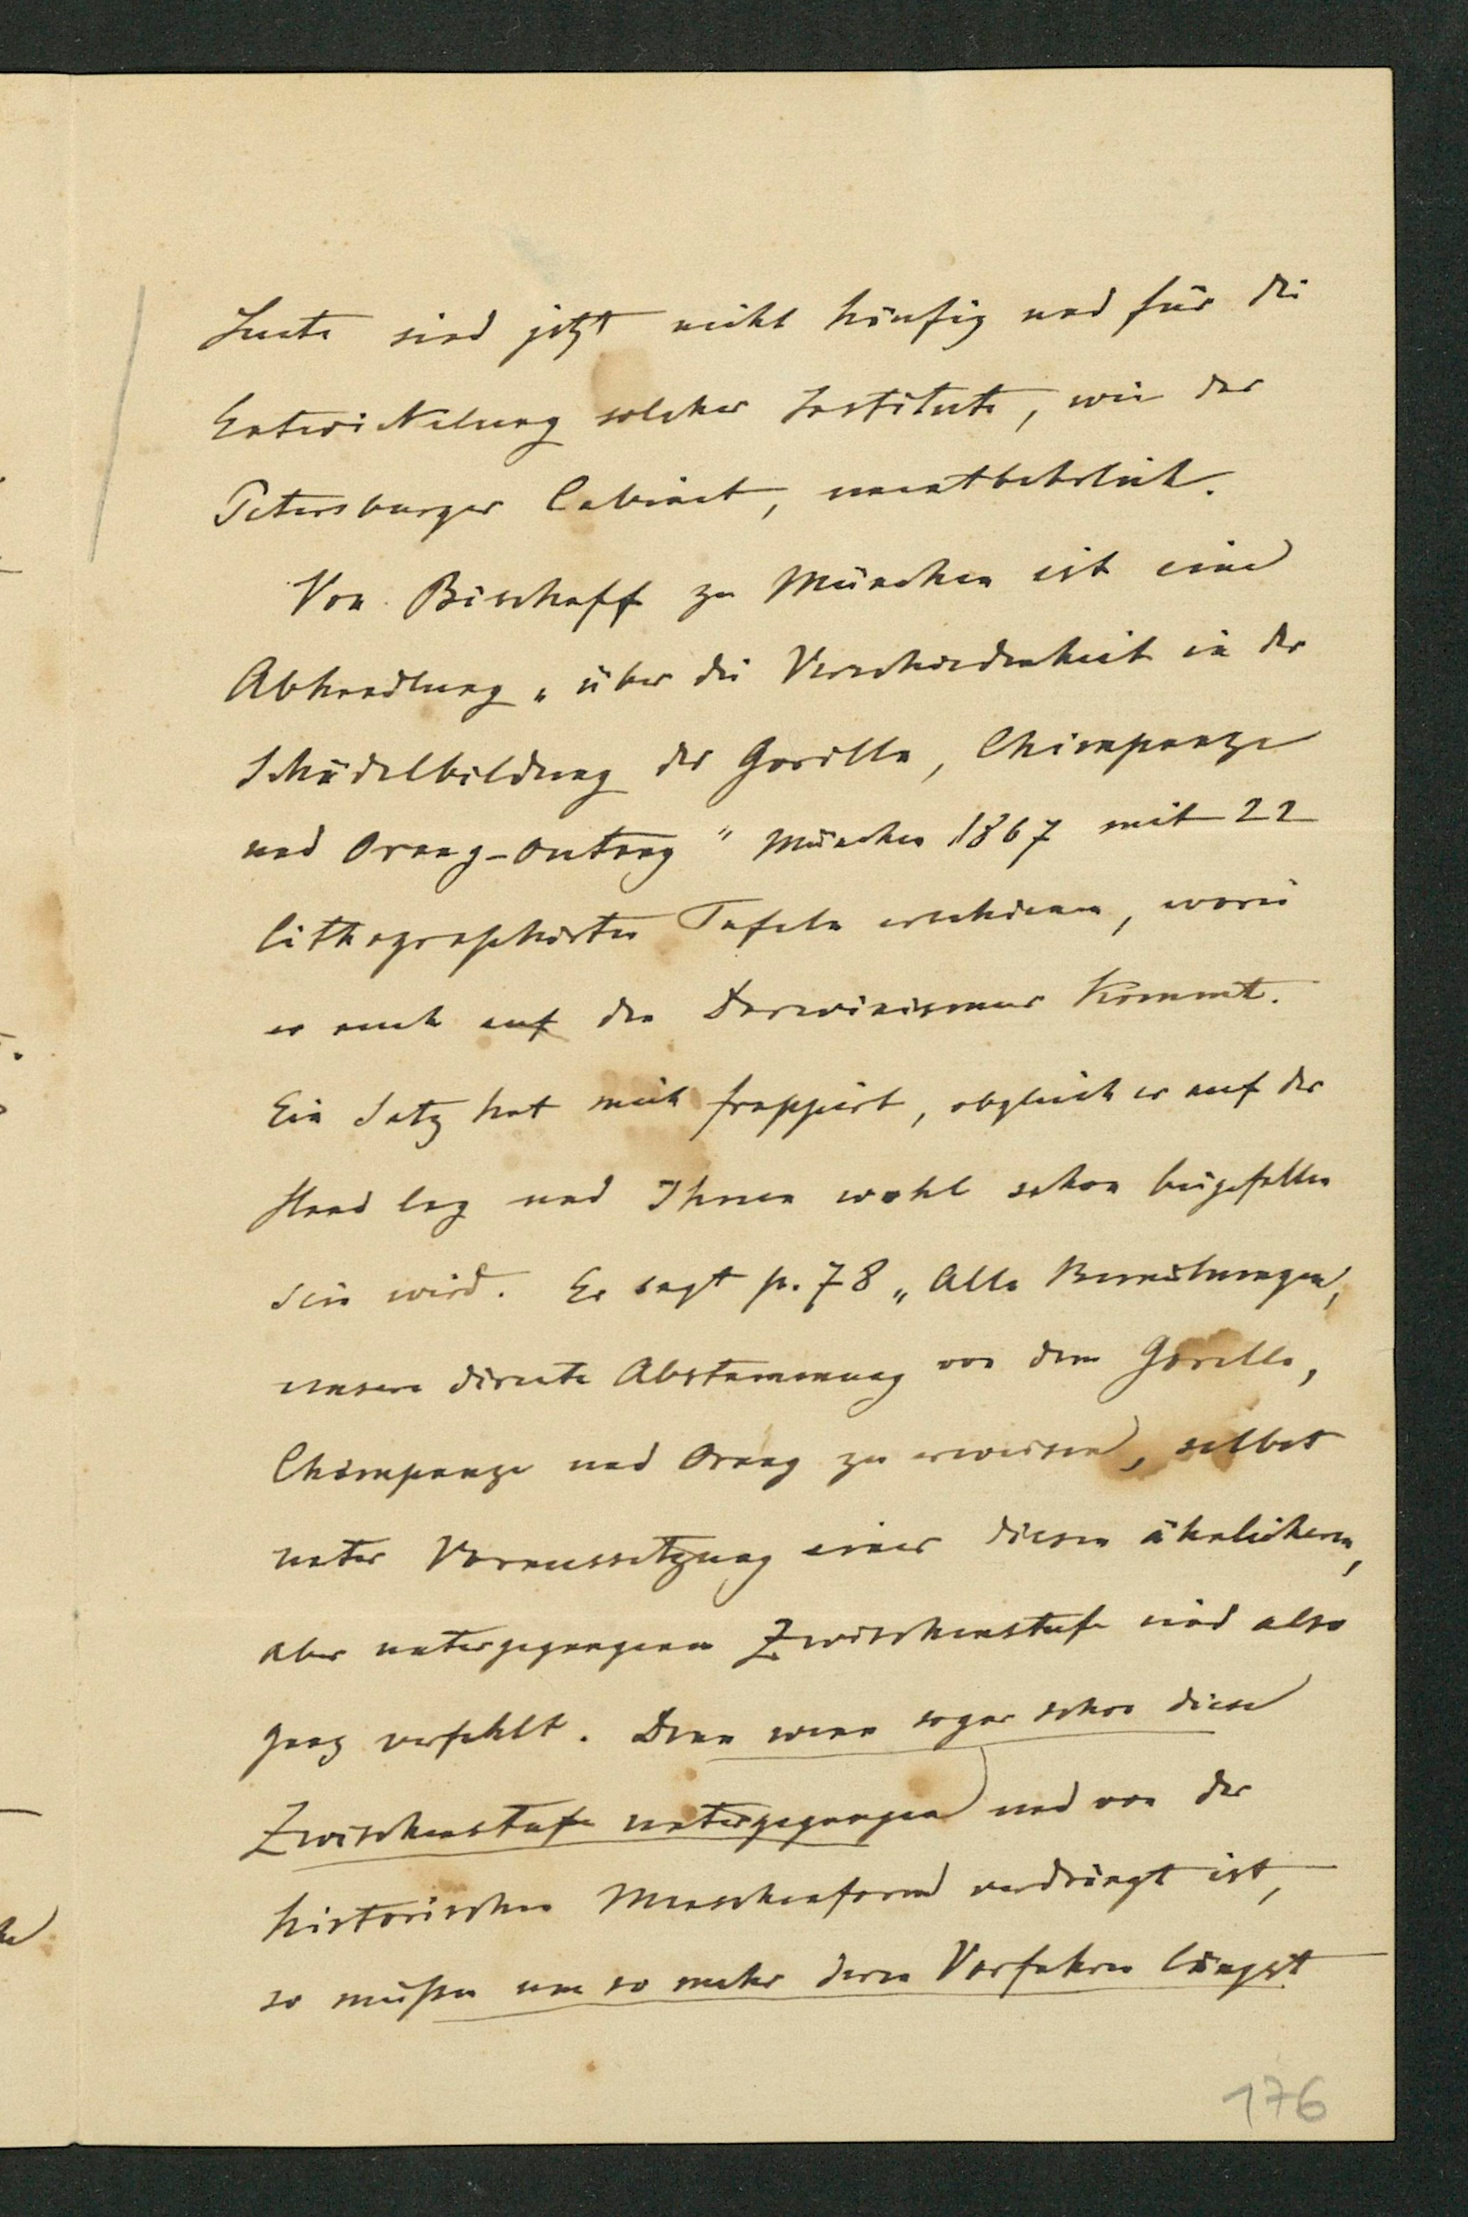 Leute sind jetzt nicht häufig und für die
Entwickelung solcher Institute, wie das
Petersburger Cabinet, unentbehrlich.
Von Bischoff zu München ist eine
Abhandlung „über die Verschiedenheit in der
Schädelbildung des Gorilla, Chimpanze
und Orang-Outang" München 1867 mit 22
lithographirten Tafeln erschienen, worin
er auch auf den Darwinismus kommt.
Ein Satz hat mich frappirt, obgleich er auf der
Hand lag und Ihnen wohl schon beigefallen
sein wird. Er sagt p. 78 „Alle Bemühungen,
unsere directe Abstammung von dem Gorilla,
Chimpanze und Orang zu erweisen, selbst
unter Voraussetzung einer diesen ähnlicheren,
aber untergegangenen Zwischenstufe sind also
ganz verfehlt. Denn wenn sogar schon diese
Zwischenstufe untergegangen und von der
historischen Menschenform verdrängt ist,
so müßen um so mehr deren Vorfahren längst
176